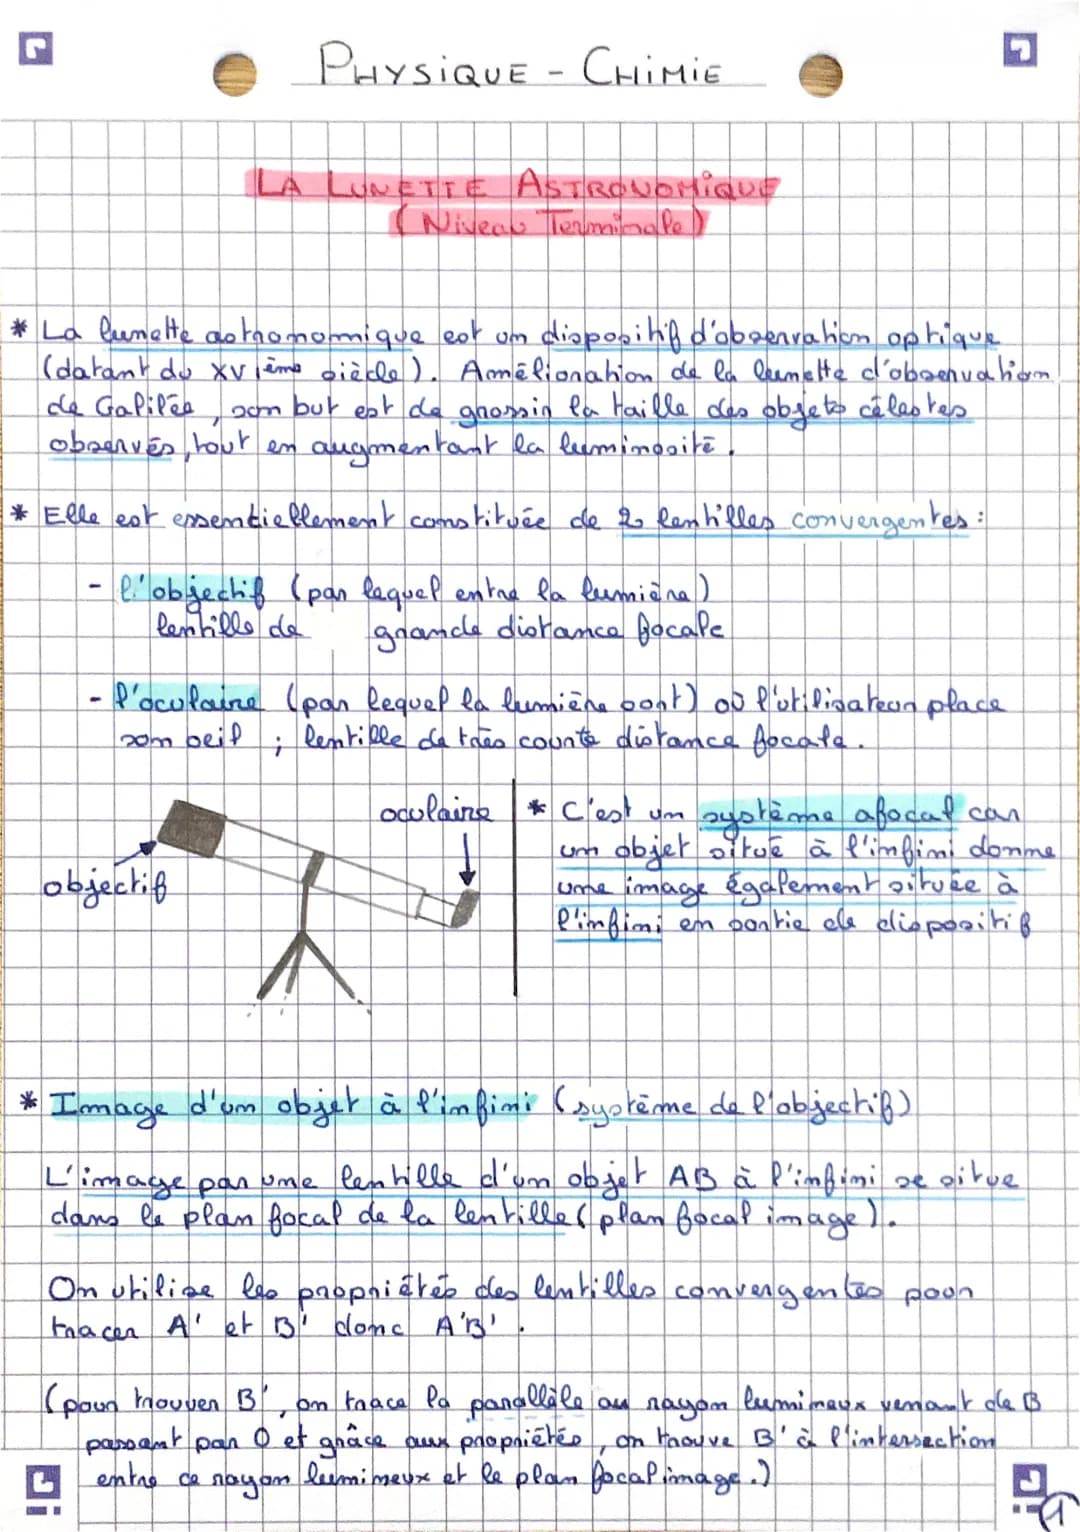 PHYSIQUE - CHIMIE
LA LUNETTE ASTRONOMIQUE
(Niveau Terminale)
* La lunette astronomique est un dispositif d'observation optique
(datant du XVIème siècle). Amélioration de la lunette d'observation
de Galilée, son but est de grossir la taille des objets célestes
observés, tout en augmentant la luminosité.
* Elle est essentiellement constituée de 2 lentilles convergentes :
- l'objectif (par lequel entre la lumière)
lentille de grande distance focale
- l'oculaire (par lequel la lumière sort) où l'utilisateur place
son oeil ; lentille de très courte distance focale.
oculaire
objectif
* C'est un système afocal car
un objet situé à l'infini donne
une image également située à
l'infini en sortie de dispositif
* Image d'un objet à l'infini (système de l'objectif)
L'image par une lentille d'un objet AB à l'infini se situe
dans le plan focal de la lentille (plan focal image).
On utilise les propriétés des lentilles convergentes pour
tracer A' et B' donc A'B'.
(pour trouver B', on trace la parallèle au rayon lumineux venant de B
passant par O et grâce aux propriétés, on trouve B' à l'intersection
entre ce rayon lumineux et le plan focal image.)
1